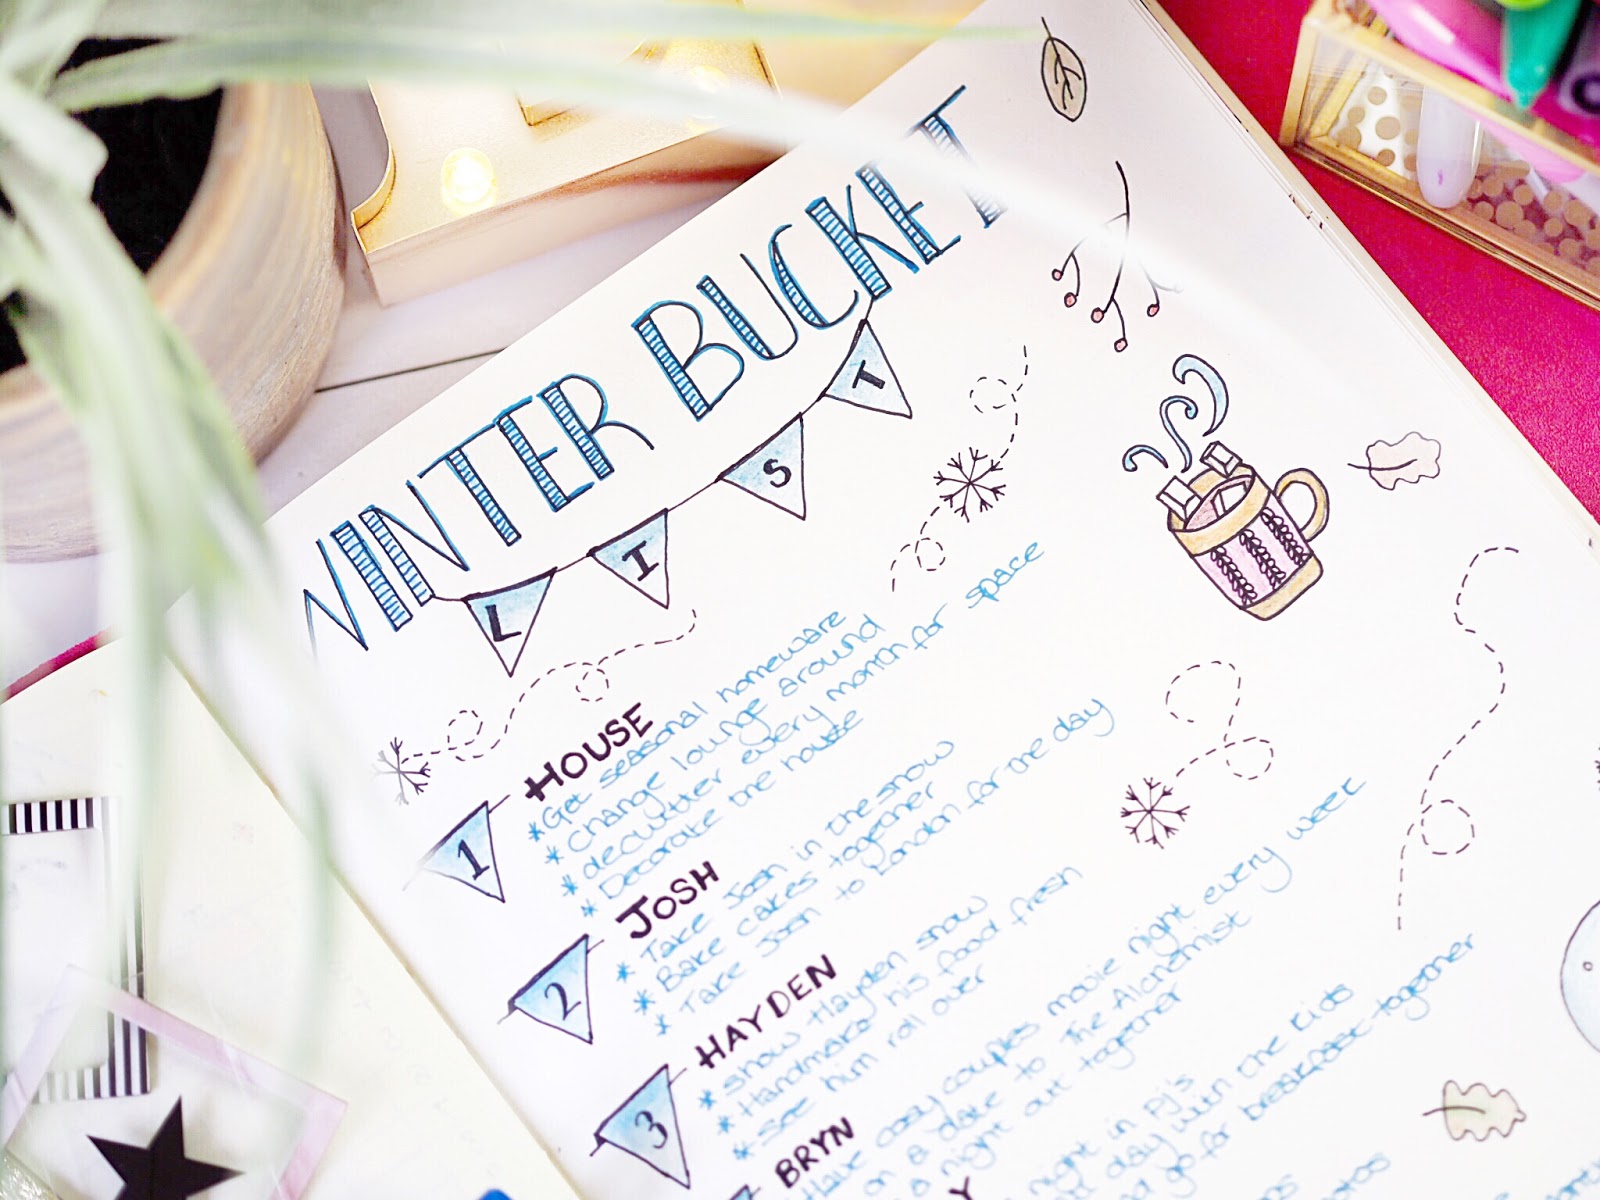 WINTER BUCKET
LIST
1 HOUSE
* Get seasonal homeware
* Change lounge around
* declutter every month for space
* Decorate the house
2 JOSH
* Take Josh in the snow
* Bake cakes together
* Take Josh to London for the day
3 HAYDEN
* Show Hayden snow
* Handmake his food fresh
* See him roll over
BRYN
Have cosy couples movie night every week
on a date to The Alchemist
a night out together
Y
night in PJ's
day with the kids
go for breakfast together